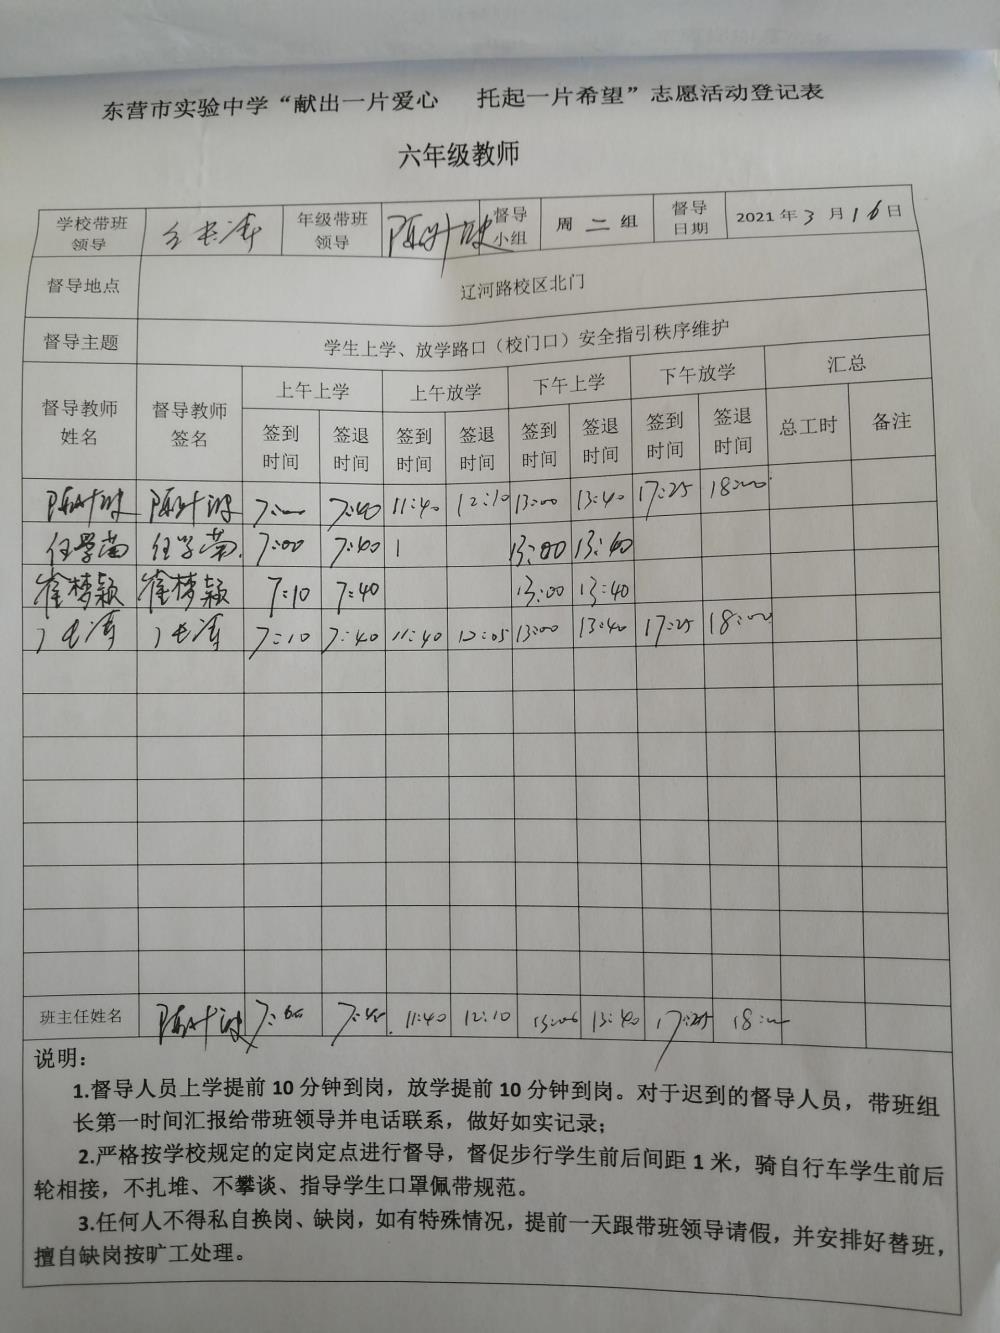 东营市实验中学“献出一片爱心 托起一片希望”志愿活动登记表
六年级教师
学校带班领导 年级带班领导 督导小组 周二组 督导日期 2021年3月16日
督导地点 辽河路校区北门
督导主题 学生上学、放学路口（校门口）安全指引秩序维护
督导教师姓名 督导教师签名 上午上学 上午放学 下午上学 下午放学 汇总
签到时间 签退时间 签到时间 签退时间 签到时间 签退时间 签到时间 签退时间 总工时 备注
7:00 7:40 11:40 12:10 13:00 13:40 17:25 18:00
任学菊 任学菊 7:00 7:40 13:00 13:40
崔梦颖 崔梦颖 7:10 7:40 13:00 13:40
7:10 7:40 11:40 12:05 13:00 13:40 17:25 18:00
班主任姓名 11:40 12:10 13:40 17:25
说明：
1.督导人员上学提前10分钟到岗，放学提前10分钟到岗。对于迟到的督导人员，带班组
长第一时间汇报给带班领导并电话联系，做好如实记录；
2.严格按学校规定的定岗定点进行督导，督促步行学生前后间距1米，骑自行车学生前后
轮相接，不扎堆、不攀谈、指导学生口罩佩带规范。
3.任何人不得私自换岗、缺岗，如有特殊情况，提前一天跟带班领导请假，并安排好替班，
擅自缺岗按旷工处理。